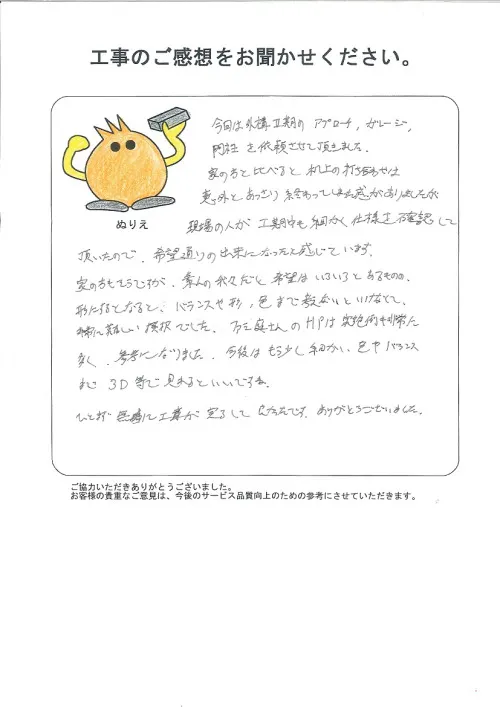 工事のご感想をお聞かせください。
ぬりえ
今回は外構工事のアプローチ,ガレージ,
門柱を依頼させて頂きました。
家の方と比べると机上の打ち合わせは
意外とあっさり終わってしまった感がありましたが
現場の人が工期中も細かく仕様を確認して
頂いたので、希望通りの出来になったと感じています。
家の方もそうですが、素人の我々だと希望はいろいろとあるものの、
形にするとなると、バランスや形,色まで考えないといけなくて、
非常に難しい選択でした。 さんのHPは実施例も非常に
多く、参考になりました。今後はもう少し細かい、色やバランス
まで3D等で見れるといいですね。
ひとまず無事に工事が完了して よかったです。ありがとうございました。
ご協力いただきありがとうございました。
お客様の貴重なご意見は、今後のサービス品質向上のための参考にさせていただきます。